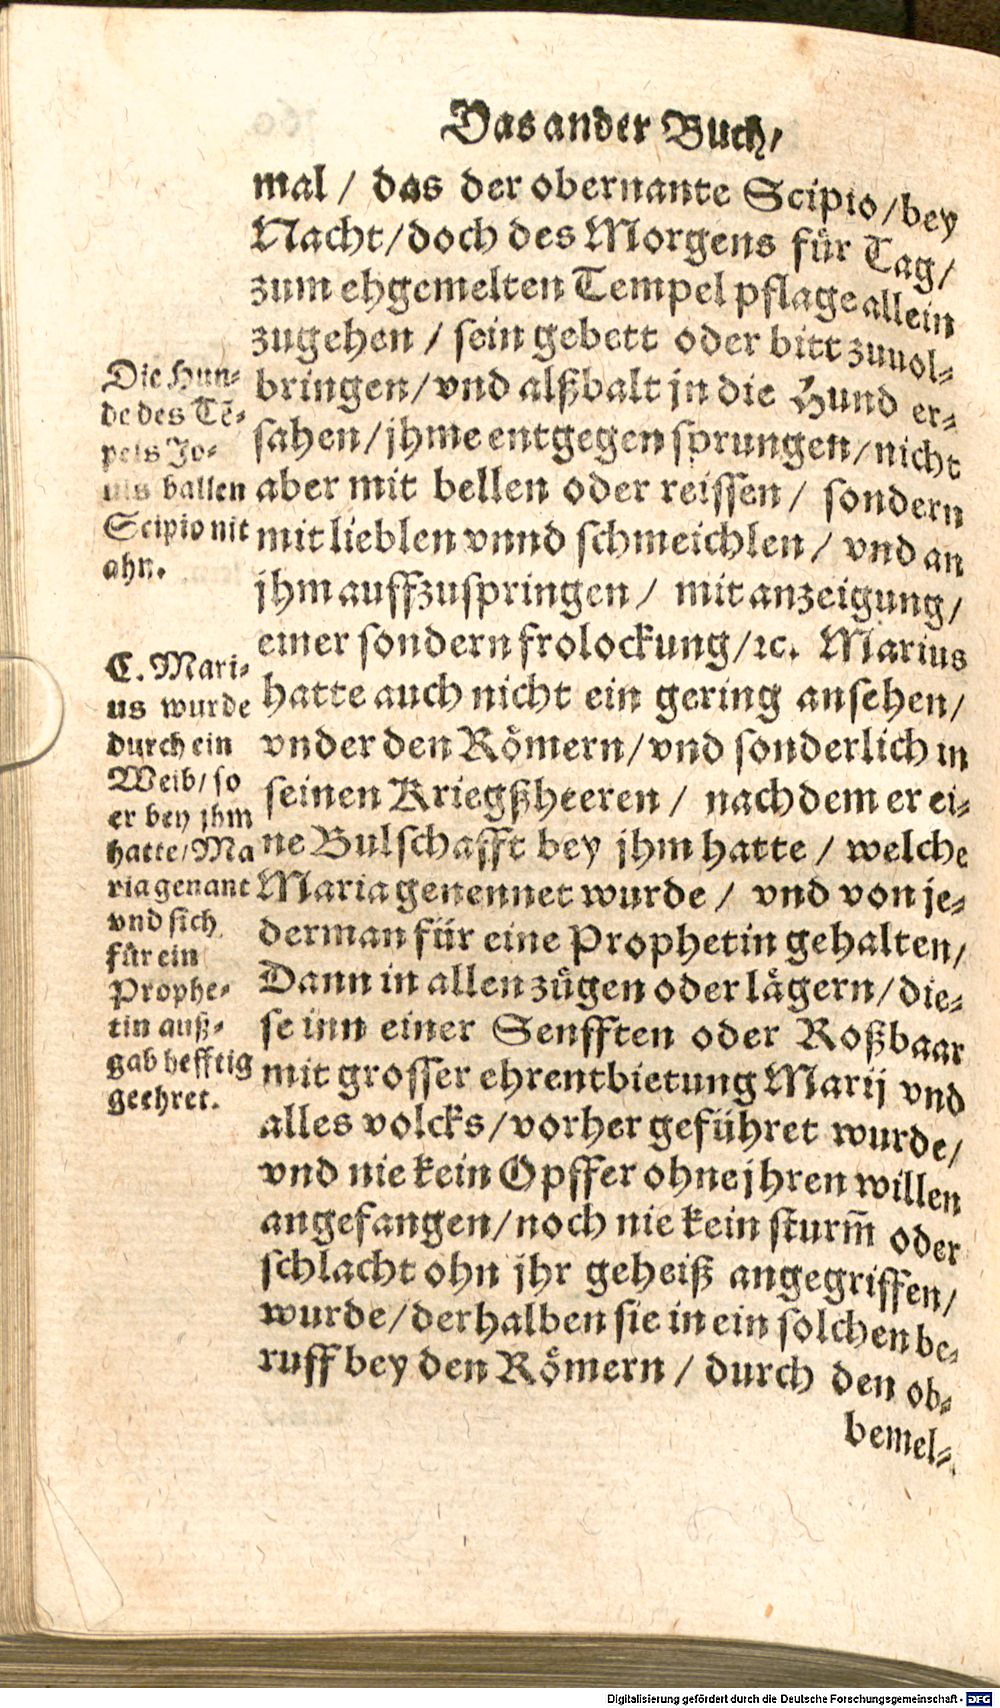 Das ander Buch/
mal / das der obernante Scipio/bey
Nacht/doch des Morgens für Tag/
zum ehgemelten Tempel pflage allein
zugehen / sein gebett oder bitt zuuol⸗
bringen/vnd alßbalt jn die Hund er⸗
sahen/jhme entgegen sprungen/nicht
aber mit bellen oder reissen/ sondern
mit lieblen vnnd schmeichlen/ vnd an
jhm auffzuspringen/ mit anzeigung/
einer sondern frolockung/ꝛc. Marius
hatte auch nicht ein gering ansehen/
vnder den Römern/vnd sonderlich in
seinen Kriegßheeren/ nach dem er ei⸗
ne Bulschafft bey jhm hatte/ welche
Maria genennet wurde/ vnd von je⸗
derman für eine Prophetin gehalten/
Dann in allen zügen oder lägern/die⸗
se inn einer Senfften oder Roßbaar
mit grosser ehrentbietung Marij vnd
alles volcks/vorher geführet wurde/
vnd nie kein Opffer ohne jhren willen
angefangen/noch nie kein sturm̃ oder
schlacht ohn jhr geheiß angegriffen/
wurde/derhalben sie in ein solchen be⸗
ruff bey den Römern/ durch den ob⸗
bemel⸗
Die Hun⸗
de des Tē⸗
pels Jo⸗
uis ballen
Scipio nit
ahn.
C. Mari⸗
us wurde
durch ein
Weib/so
er bey jhm
hatte/Ma
ria genant
vnd sich
für ein
Prophe⸗
tin auß⸗
gab hefftig
geehret.
Digitalisierung gefördert durch die Deutsche Forschungsgemeinschaft - DFG